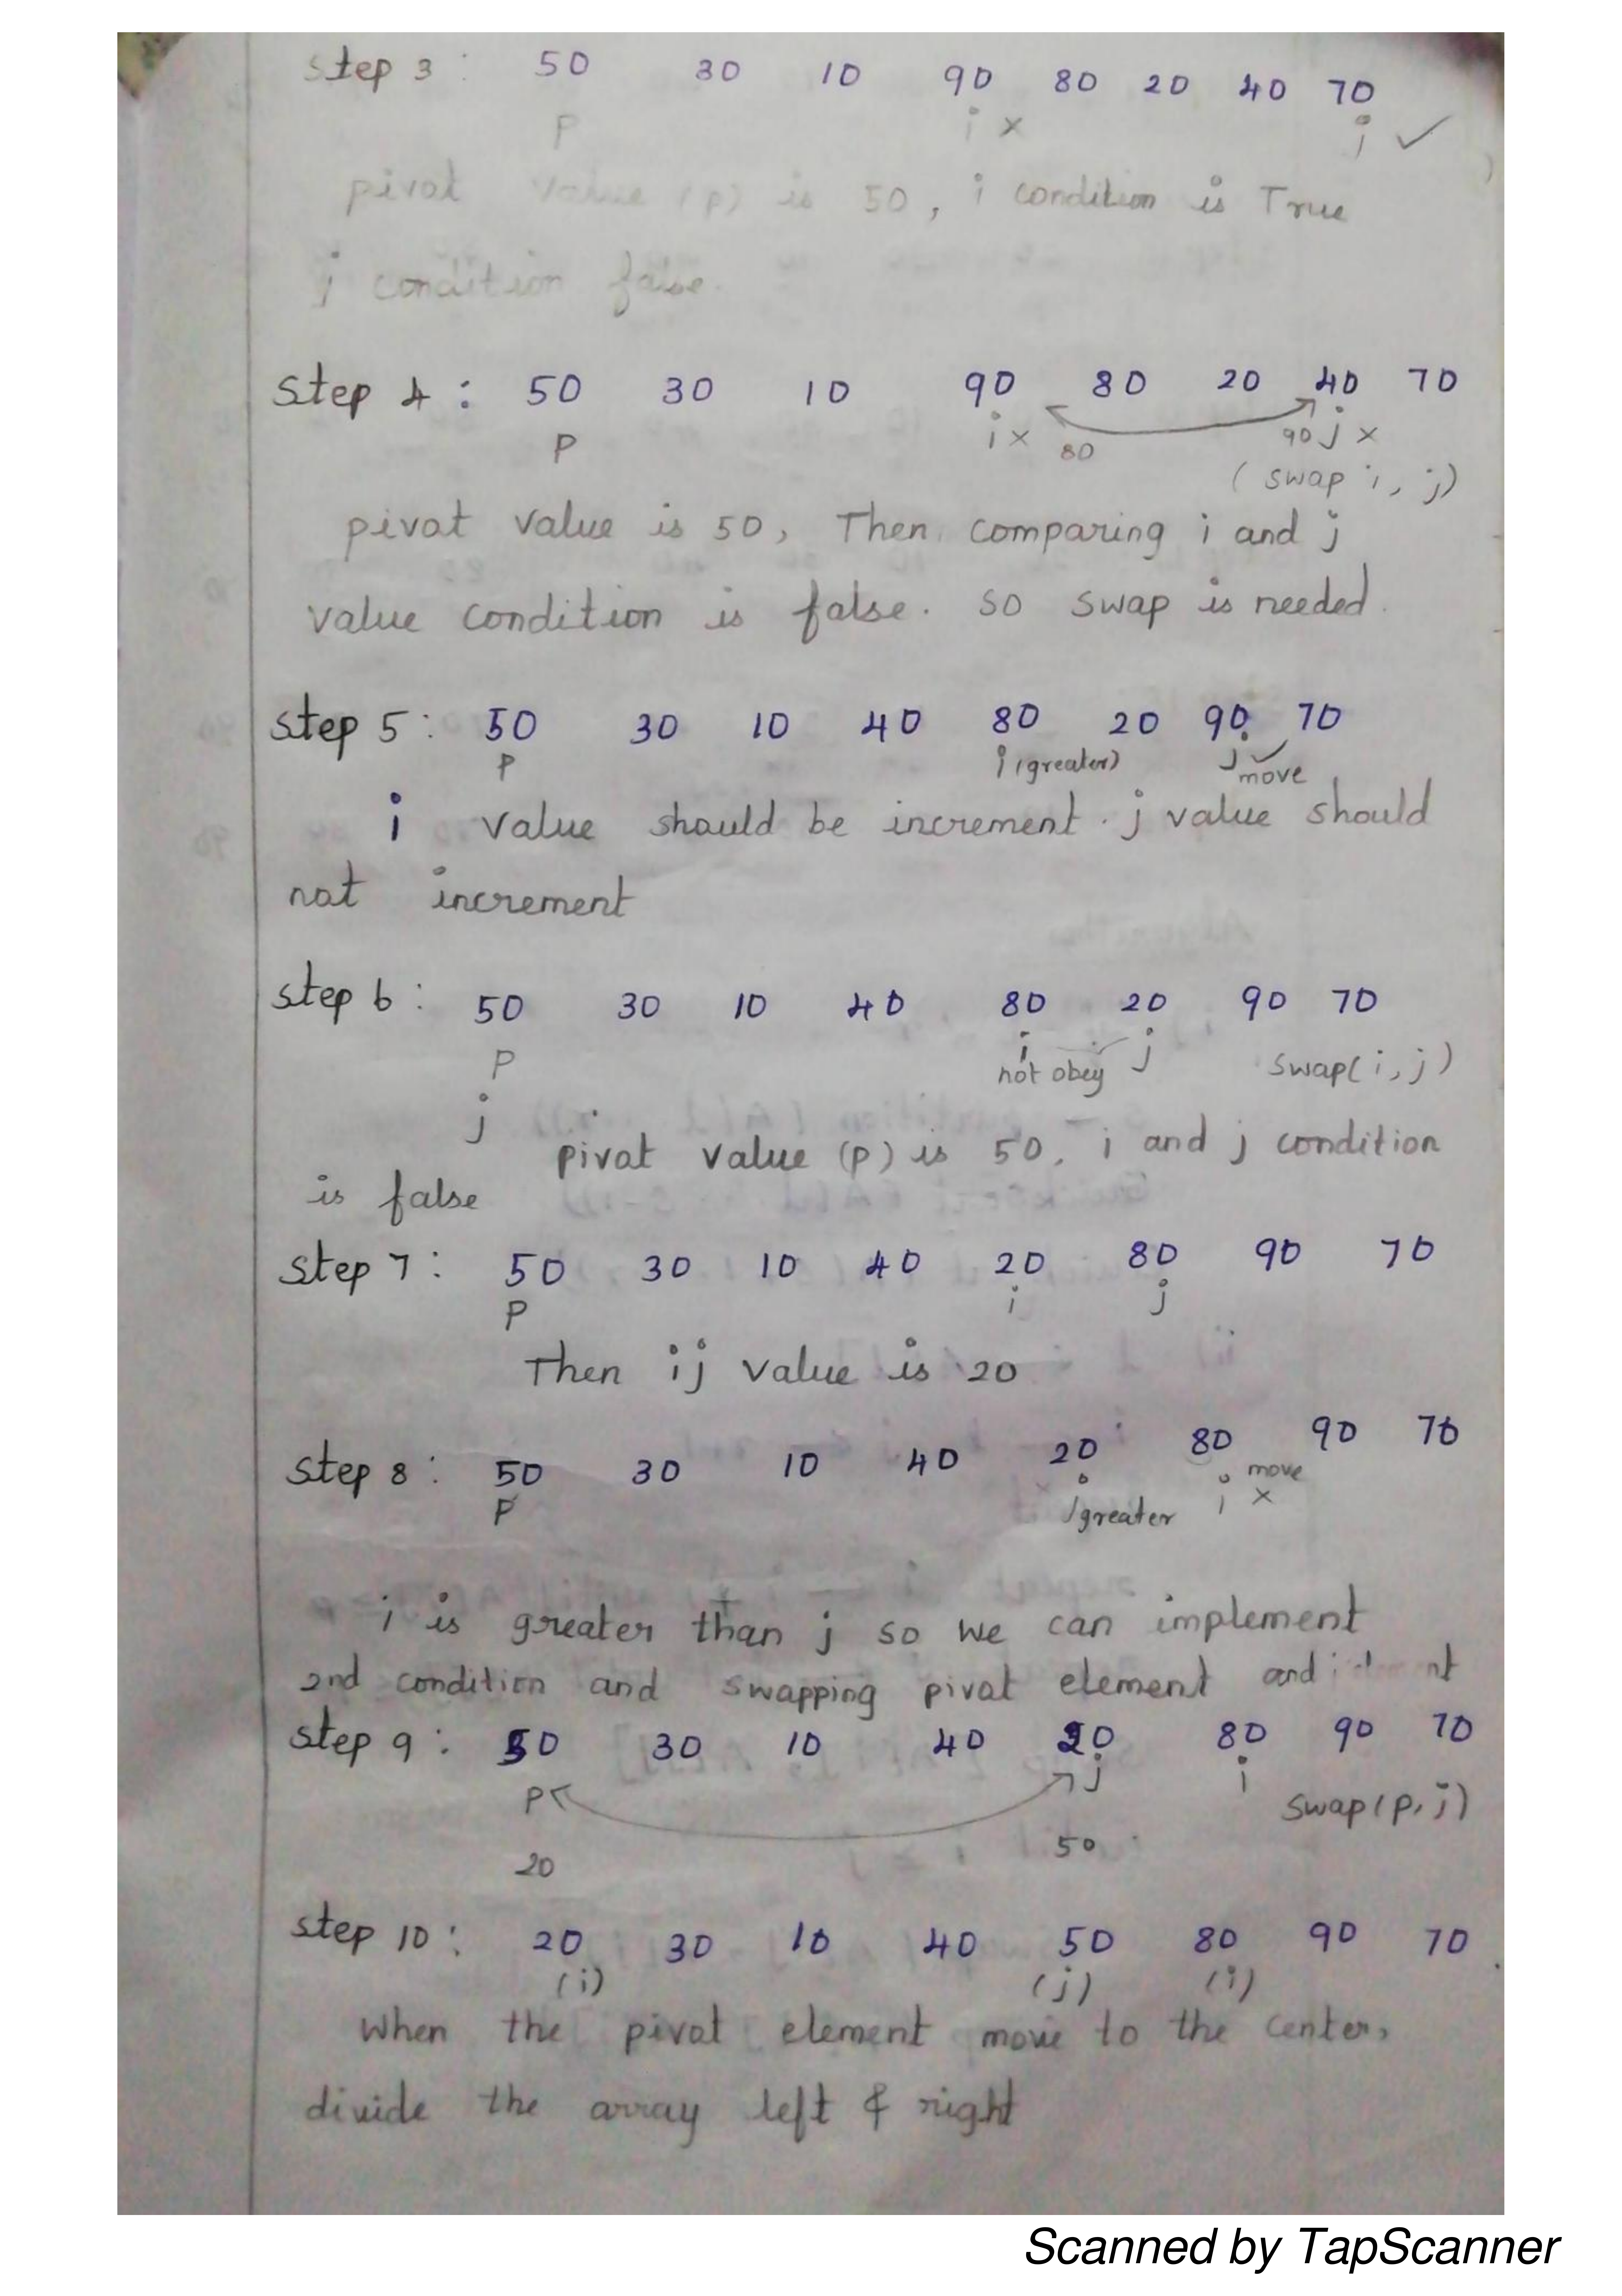 Step 3 : 50 30 10 90 80 20 40 70
P i × j ✓
pivot value (p) is 50, i condition is True
j condition false.
Step 4 : 50 30 10 90 80 20 40 70
P i × 80 90 j ×
(swap i, j)
pivot value is 50, Then comparing i and j
value condition is false. so swap is needed.
Step 5 : 50 30 10 40 80 20 90 70
P i (greater) j ✓ move
i value should be increment. j value should
not increment
Step 6 : 50 30 10 40 80 20 90 70
P i not obey j swap(i, j)
j
pivot value (p) is 50, i and j condition
is false
Step 7 : 50 30 10 40 20 80 90 70
P i j
Then ij value is 20
Step 8 : 50 30 10 40 20 80 90 70
P greater i move ×
i is greater than j so we can implement
2nd condition and swapping pivot element and
Step 9 : 50 30 10 40 20 80 90 70
P j i swap(p, j)
20 50
Step 10 : 20 30 10 40 50 80 90 70
(i) (j) (i)
When the pivot element move to the center,
divide the array left & right
Scanned by TapScanner